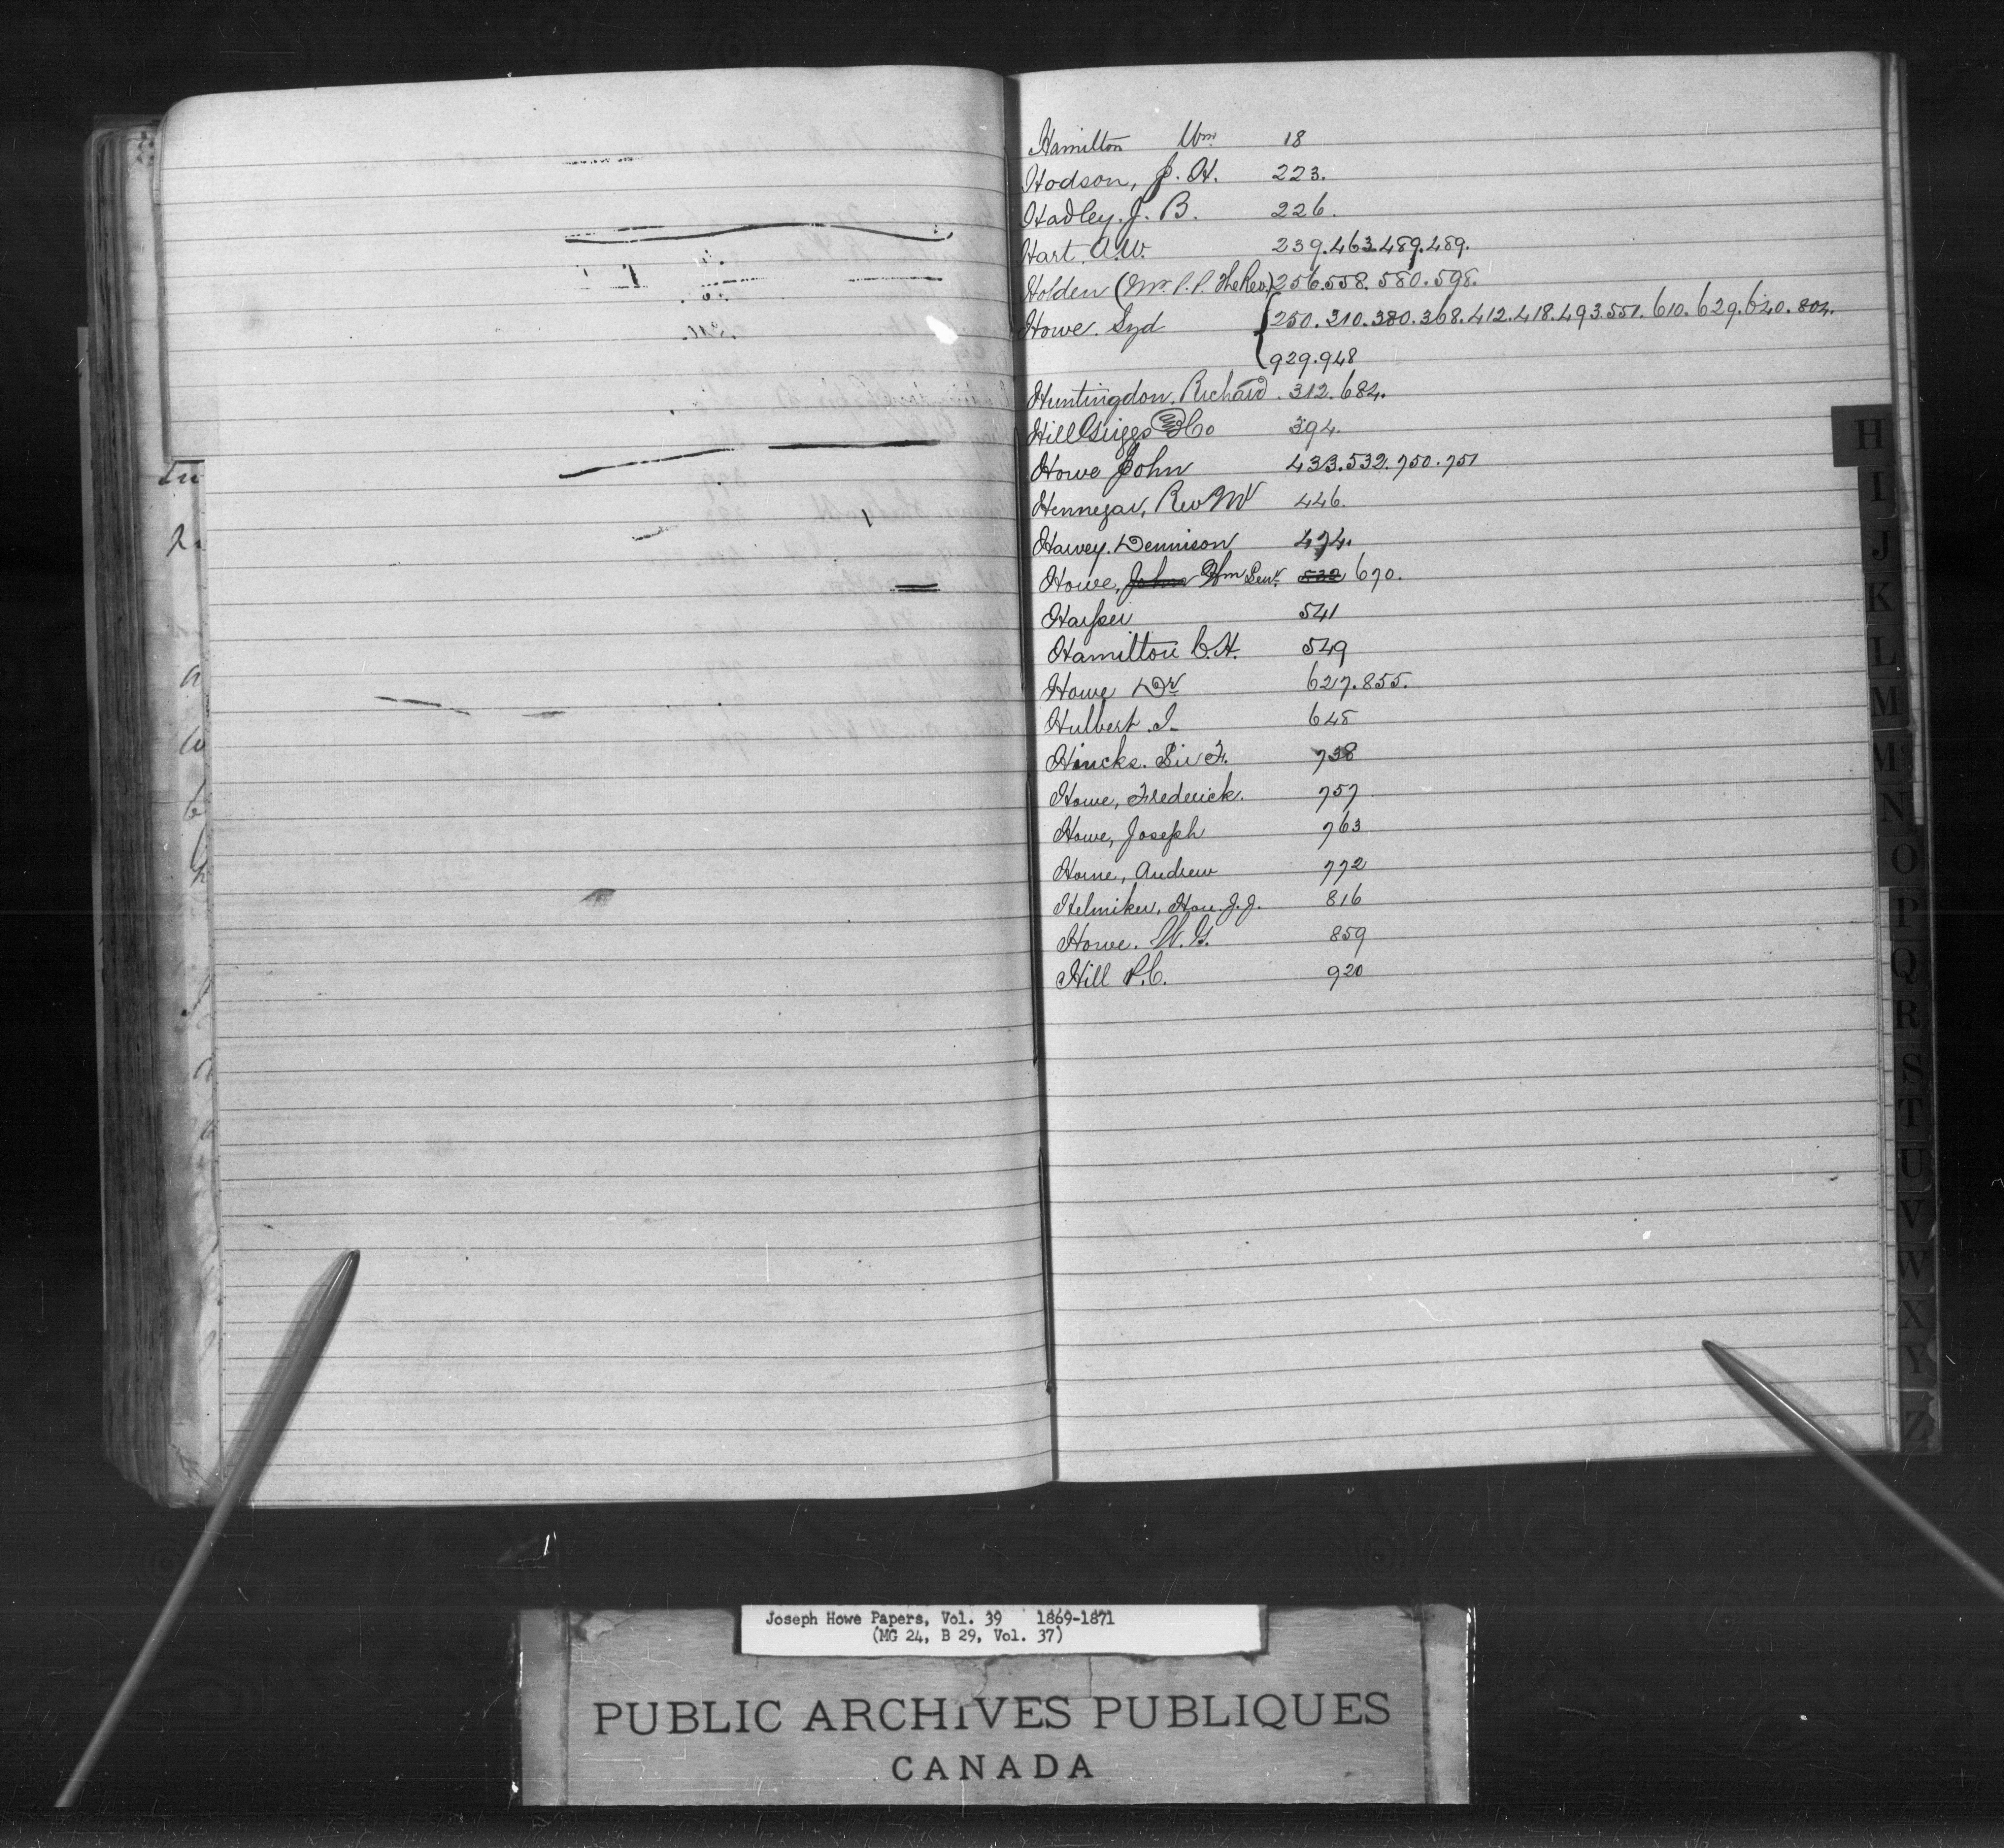 Hamilton Wm 18
Hodson, J. H. 223.
Hadley. J. B. 226.
Hart. A.W. 239.463.489.489.
Holden (Mr. P.P. The Rev.) 256.558.580.598.
Howe. Syd 250.310.380.368.412.418.493.551.610.629.620.804.
929.948
Huntingdon. Richard. 312.684.
Hill Griggs & Co 394.
Howe John 433.532.750.751
Hennegar, Rev Mr 446.
Harvey. Dennison 474.
Howe, John Wm Senr. 532 670.
Harper 541
Hamilton C.H. 549
Howe Dr 627.855.
Hulbert. J. 648
Hincks. Sir F. 738
Howe, Frederick. 757
Howe, Joseph 763
Horne, Andrew 772
Helmiker, Hon. J.J. 816
Howe. W.G. 859
Hill P.C. 920
H
I
J
K
L
M
Mc
N
O
P
Q
R
S
T
U
V
W
X
Y
Z
Joseph Howe Papers, Vol. 39 1869-1871
(MG 24, B 29, Vol. 37)
PUBLIC ARCHIVES PUBLIQUES
CANADA